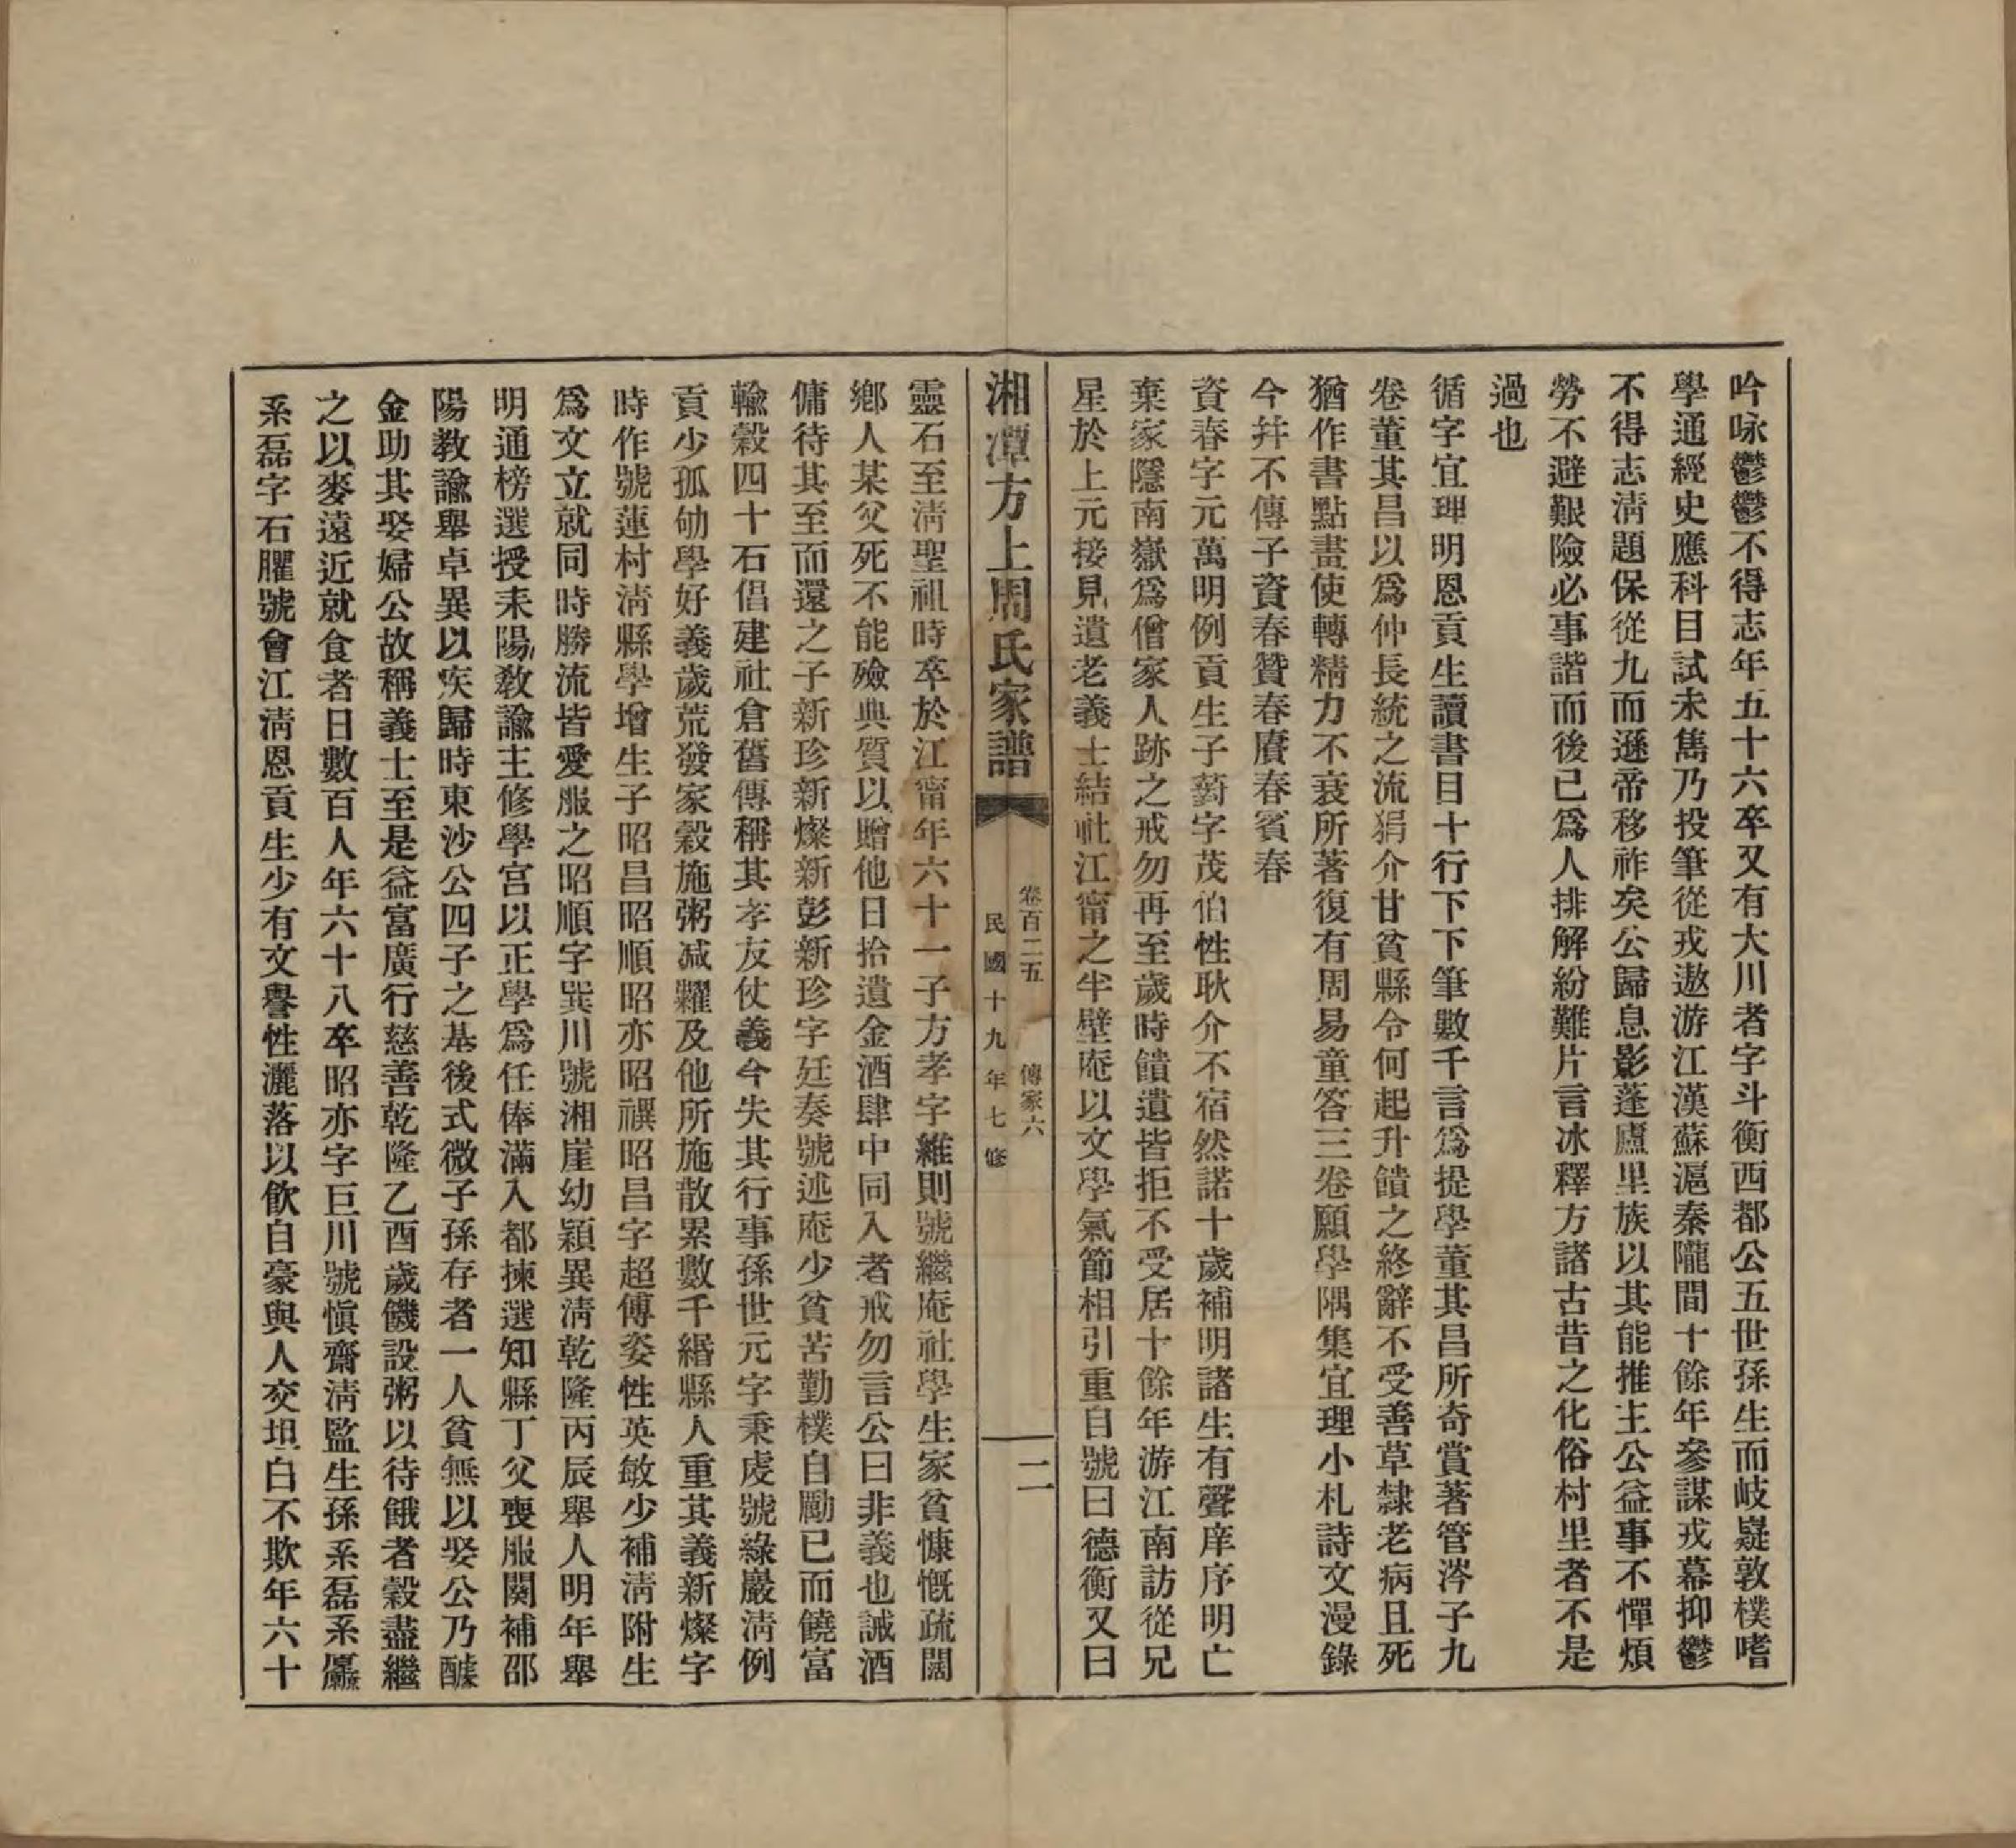 吟咏鬱鬱不得志年五十六卒又有大川者字斗衡西都公五世孫生而岐嶷敦樸嗜
學通經史應科目試未雋乃投筆從戎遨游江漢蘇滬秦隴間十餘年參謀戎幕抑鬱
不得志清題保從九而遜帝移祚矣公歸息影蓬廬里族以其能推主公益事不憚煩
勞不避艱險必事諧而後已爲人排解紛難片言冰釋方諸古昔之化俗村里者不是
過也
循字宜理明恩貢生讀書目十行下下筆數千言爲提學董其昌所奇賞著管涔子九
卷董其昌以爲仲長統之流狷介甘貧縣令何起升饋之終辭不受善草隸老病且死
猶作書點畫使轉精力不衰所著復有周易童答三卷願學隅集宜理小札詩文漫錄
今幷不傳子資春贊春賡春賓春
資春字元萬明例貢生子藭字茂伯性耿介不宿然諾十歲補明諸生有聲庠序明亡
棄家隱南嶽爲僧家人跡之戒勿再至歲時饋遺皆拒不受居十餘年游江南訪從兄
星於上元接見遺老義士結社江甯之半壁庵以文學氣節相引重自號曰德衡又曰
湘潭方上周氏家譜
卷百二五 傳家六
民國十九年七修
二
靈石至清聖祖時卒於江甯年六十一子方孝字維則號繼庵社學生家貧慷慨疏闊
鄉人某父死不能殮典質以贈他日拾遺金酒肆中同入者戒勿言公曰非義也誡酒
傭待其至而還之子新珍新燦新彭新珍字廷奏號述庵少貧苦勤樸自勵已而饒富
輸穀四十石倡建社倉舊傳稱其孝友仗義今失其行事孫世元字秉虔號綠巖清例
貢少孤劬學好義歲荒發家穀施粥減糶及他所施散累數千緡縣人重其義新燦字
時作號蓮村清縣學增生子昭昌昭順昭亦昭禩昭昌字超傅姿性英敏少補清附生
爲文立就同時勝流皆愛服之昭順字巽川號湘崖幼穎異清乾隆丙辰舉人明年舉
明通榜選授耒陽敎諭主修學宮以正學爲任俸滿入都揀選知縣丁父喪服闋補邵
陽教諭舉卓異以疾歸時東沙公四子之基後式微子孫存者一人貧無以娶公乃醵
金助其娶婦公故稱義士至是益富廣行慈善乾隆乙酉歲饑設粥以待餓者穀盡繼
之以麥遠近就食者日數百人年六十八卒昭亦字巨川號愼齋清監生孫系磊系厵
系磊字石臞號會江清恩貢生少有文譽性灑落以飲自豪與人交坦白不欺年六十